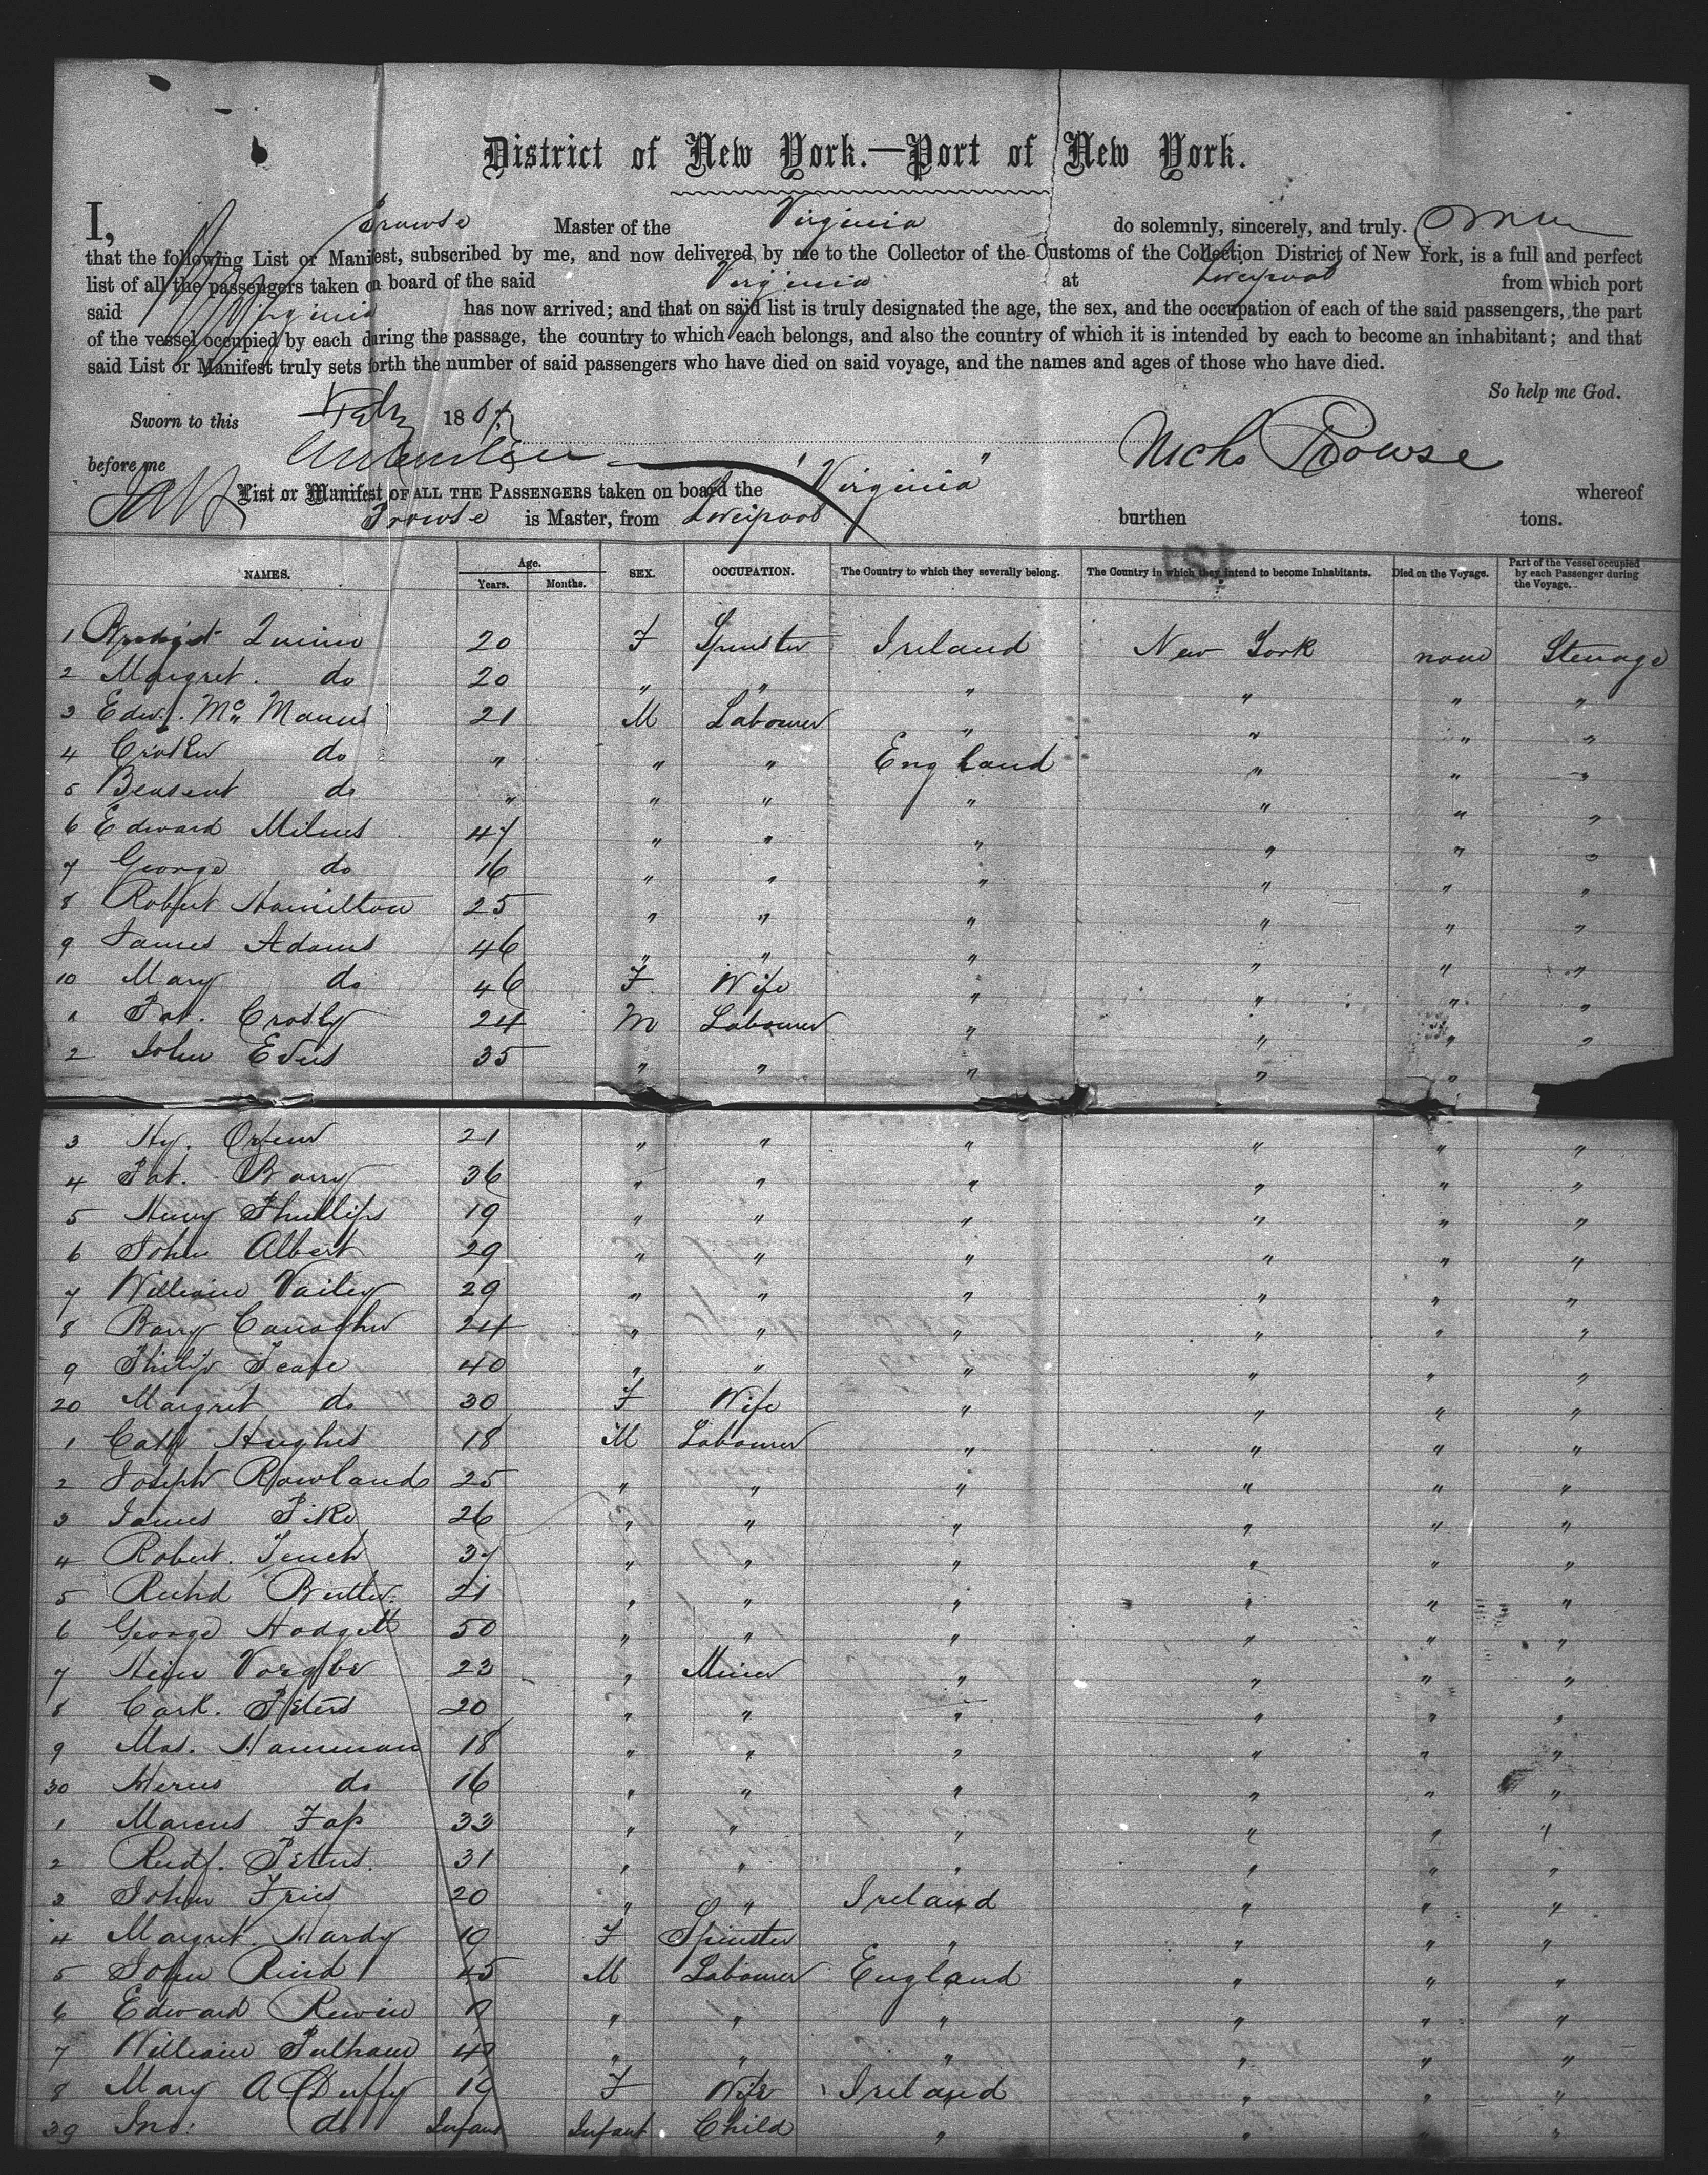 District of New York.—Port of New York.
I, Prowse Master of the Virginia do solemnly, sincerely, and truly.
that the following List or Manifest, subscribed by me, and now delivered by me to the Collector of the Customs of the Collection District of New York, is a full and perfect
list of all the passengers taken on board of the said Virginia at Liverpool from which port
said Virginia has now arrived; and that on said list is truly designated the age, the sex, and the occupation of each of the said passengers, the part
of the vessel occupied by each during the passage, the country to which each belongs, and also the country of which it is intended by each to become an inhabitant; and that
said List or Manifest truly sets forth the number of said passengers who have died on said voyage, and the names and ages of those who have died.
So help me God.
Sworn to this 186
before me Nichs Prowse
List or Manifest OF ALL THE PASSENGERS taken on board the "Virginia" whereof
Prowse is Master, from Liverpool burthen tons.
NAMES. Age. Years. Months. SEX. OCCUPATION. The Country to which they severally belong. The Country in which they intend to become Inhabitants. Died on the Voyage. Part of the Vessel occupied by each Passenger during the Voyage.
1 20 F Spinster Ireland New York none Steerage
2 Margret. do 20 " " " " " "
3 Edwd. Mc Manus 21 M Labourer " " " "
4 do " " " England " " "
5 do " " " " " " "
6 Edward Milnes 47 " " " " " "
7 George do 16 " " " " " "
8 Robert Hamilton 25 " " " " " "
9 James Adams 46 " " " " " "
10 Mary do 46 F Wife " " " "
1 Pat. 24 M Labourer " " " "
2 John 35 " " " " "
3 Hy. 21 " " " " " "
4 Pat. Barry 36 " " " " " "
5 Henry Phillips 19 " " " " " "
6 John Albert 29 " " " " " "
7 William Vailey 29 " " " " " "
8 Barry 24 " " " " " "
9 Philip 40 " " " " " "
20 Margret do 30 F Wife " " " "
1 Hughes 18 M Labourer " " " "
2 Joseph Rowland 25 " " " " " "
3 James Pike 26 " " " " " "
4 Robert. Tench 37 " " " " " "
5 Richd Butler 21 " " " " " "
6 George Hodgett 50 " " " " " "
7 23 " Miner " " " "
8 Carl. Peters 20 " " " " " "
9 18 " " " " " "
30 do 16 " " " " " "
1 Marcus 33 " " " " " "
2 Rudf. Peters. 31 " " " " " "
3 John Fries 20 " " Ireland " " "
4 Margret. Hardy 19 F Spinster " " " "
5 John 45 M Labourer England " " "
6 Edward " " " " " "
7 William Pulham " " " " " "
8 Mary A. Duffy 19 F Wife Ireland " " "
39 Jno: do Infant Infant Child " " " "